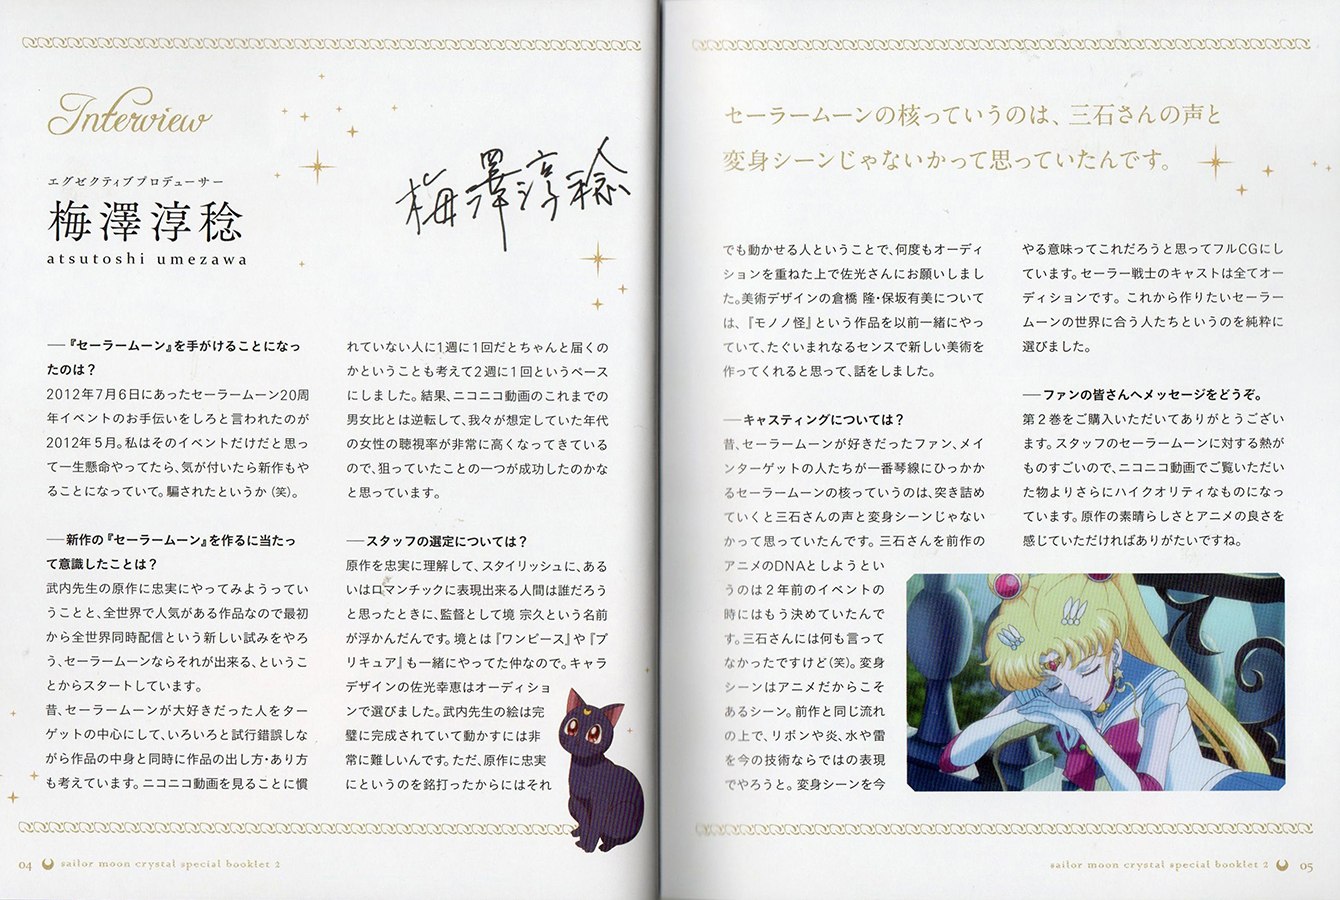 Interview
エグゼクティブプロデューサー
梅澤淳稔
atsutoshi umezawa
梅澤淳稔
──『セーラームーン』を手がけることになっ
たのは?
2012年7月6日にあったセーラームーン20周
年イベントのお手伝いをしろと言われたのが
2012年5月。私はそのイベントだけだと思っ
て一生懸命やってたら、気が付いたら新作もや
ることになっていて。騙されたというか(笑)。
──新作の『セーラームーン』を作るに当たっ
て意識したことは?
武内先生の原作に忠実にやってみようってい
うことと、全世界で人気がある作品なので最初
から全世界同時配信という新しい試みをやろ
う、セーラームーンならそれが出来る、というこ
とからスタートしています。
昔、セーラームーンが大好きだった人をター
ゲットの中心にして、いろいろと試行錯誤しな
がら作品の中身と同時に作品の出し方・あり方
も考えています。ニコニコ動画を見ることに慣
れていない人に1週に1回だとちゃんと届くの
かということも考えて2週に1回というペース
にしました。結果、ニコニコ動画のこれまでの
男女比とは逆転して、我々が想定していた年代
の女性の聴視率が非常に高くなってきている
ので、狙っていたことの一つが成功したのかな
と思っています。
──スタッフの選定については?
原作を忠実に理解して、スタイリッシュに、ある
いはロマンチックに表現出来る人間は誰だろう
と思ったときに、監督として境 宗久という名前
が浮かんだんです。境とは『ワンピース』や『プ
リキュア』も一緒にやってた仲なので。キャラ
デザインの佐光幸恵はオーディショ
ンで選びました。武内先生の絵は完
璧に完成されていて動かすには非
常に難しいんです。ただ、原作に忠実
にというのを銘打ったからにはそれ
04 sailor moon crystal special booklet 2
セーラームーンの核っていうのは、三石さんの声と
変身シーンじゃないかって思っていたんです。
でも動かせる人ということで、何度もオーディ
ションを重ねた上で佐光さんにお願いしまし
た。美術デザインの倉橋 隆・保坂有美について
は、『モノノ怪』という作品を以前一緒にやっ
ていて、たぐいまれなるセンスで新しい美術を
作ってくれると思って、話をしました。
──キャスティングについては?
昔、セーラームーンが好きだったファン、メイ
ンターゲットの人たちが一番琴線にひっかか
るセーラームーンの核っていうのは、突き詰め
ていくと三石さんの声と変身シーンじゃない
かって思っていたんです。三石さんを前作の
アニメのDNAとしようとい
うのは2年前のイベントの
時にはもう決めていたんで
す。三石さんには何も言って
なかったですけど(笑)。変身
シーンはアニメだからこそ
あるシーン。前作と同じ流れ
の上で、リボンや炎、水や雷
を今の技術ならではの表現
でやろうと。変身シーンを今
やる意味ってこれだろうと思ってフルCGにし
ています。セーラー戦士のキャストは全てオー
ディションです。これから作りたいセーラー
ムーンの世界に合う人たちというのを純粋に
選びました。
──ファンの皆さんへメッセージをどうぞ。
第2巻をご購入いただいてありがとうござい
ます。スタッフのセーラームーンに対する熱が
ものすごいので、ニコニコ動画でご覧いただい
た物よりさらにハイクオリティなものになっ
ています。原作の素晴らしさとアニメの良さを
感じていただければありがたいですね。
sailor moon crystal special booklet 2 05